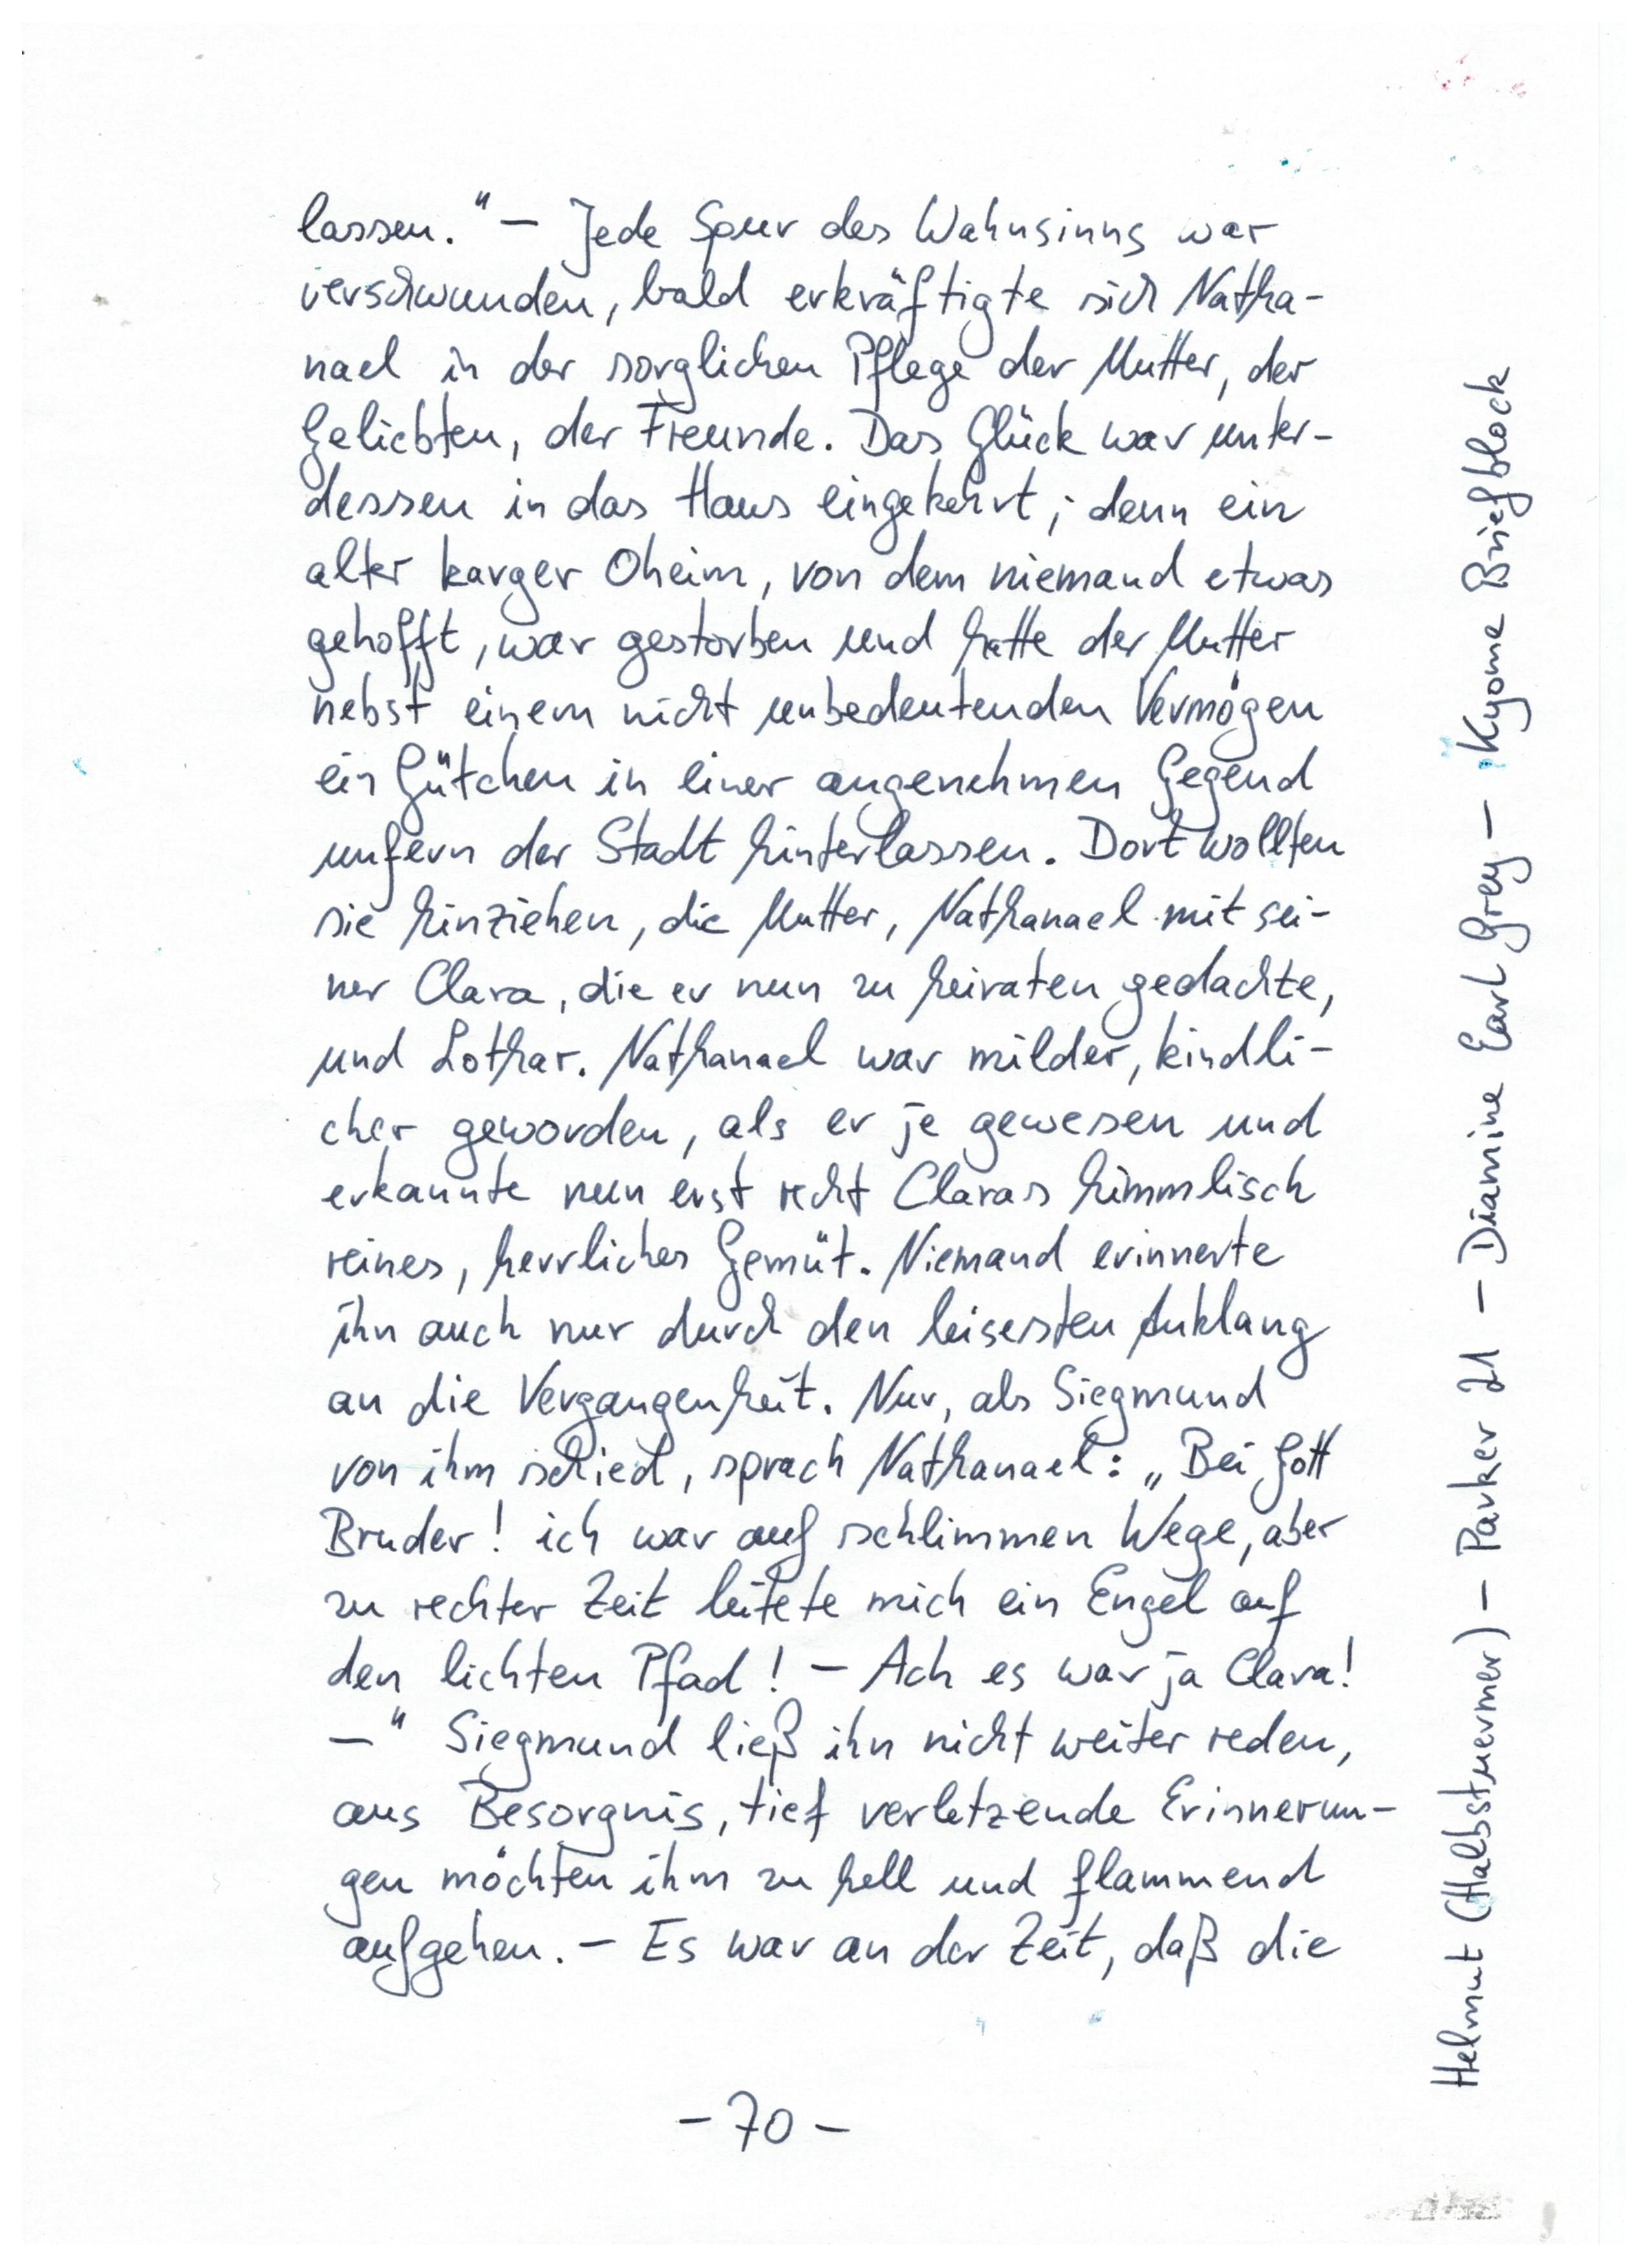 lassen." – Jede Spur des Wahnsinns war
verschwunden, bald erkräftigte sich Natha-
nael in der sorglichen Pflege der Mutter, der
Geliebten, der Freunde. Das Glück war unter-
dessen in das Haus eingekehrt; denn ein
alter karger Oheim, von dem niemand etwas
gehofft, war gestorben und hatte der Mutter
nebst einem nicht unbedeutenden Vermögen
ein Gütchen in einer angenehmen Gegend
unfern der Stadt hinterlassen. Dort wollten
sie hinziehen, die Mutter, Nathanael mit sei-
ner Clara, die er nun zu heiraten gedachte,
und Lothar. Nathanael war milder, kindli-
cher geworden, als er je gewesen und
erkannte nun erst recht Claras himmlisch
reines, herrliches Gemüt. Niemand erinnerte
ihn auch nur durch den leisesten Anklang
an die Vergangenheit. Nur, als Siegmund
von ihm schied, sprach Nathanael: „Bei Gott
Bruder! ich war auf schlimmen Wege, aber
zu rechter Zeit leitete mich ein Engel auf
den lichten Pfad! – Ach es war ja Clara!
–" Siegmund ließ ihn nicht weiter reden,
aus Besorgnis, tief verletzende Erinnerun-
gen möchten ihm zu hell und flammend
aufgehen. – Es war an der Zeit, daß die
- 70 -
Helmut (Halbstuermer) – Parker 21 – Diamine Earl Grey – Kyome Briefblock